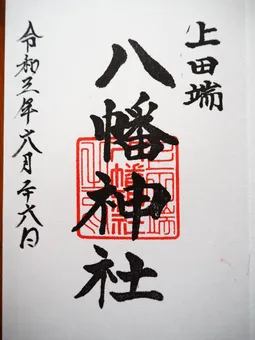 上田端
八幡神社
令和三年六月廿六日